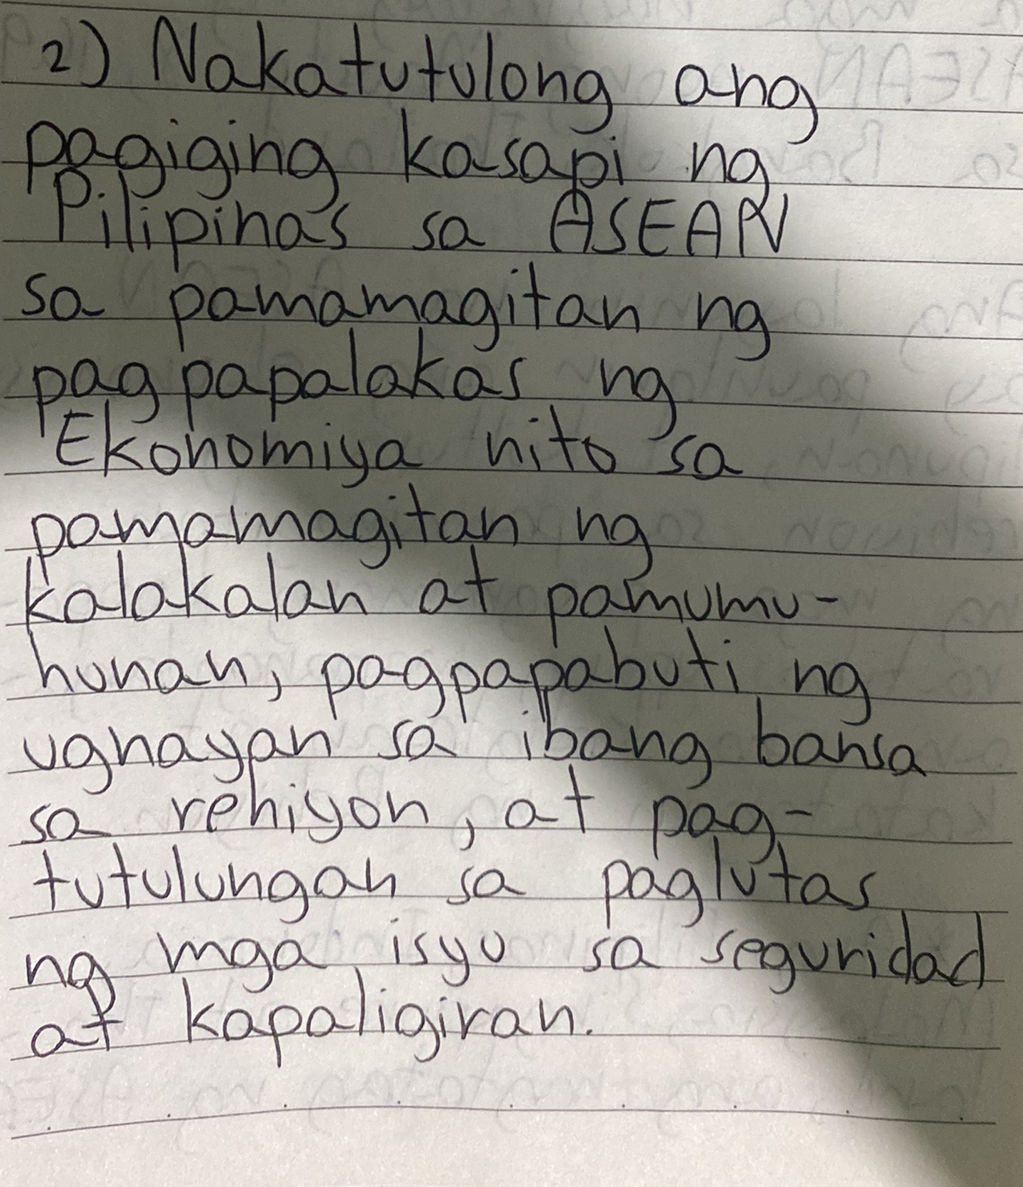 2) Nakatutulong ang
pagiging kasapi ng
Pilipinas sa ASEAN
sa pamamagitan ng
pagpapalakas ng
Ekonomiya nito sa
pamamagitan ng
kalakalan at pamumu-
hunan, pagpapabuti ng
ugnayan sa ibang bansa
sa rehiyon, at pag-
tutulungan sa paglutas
ng mga isyu sa seguridad
at kapaligiran.